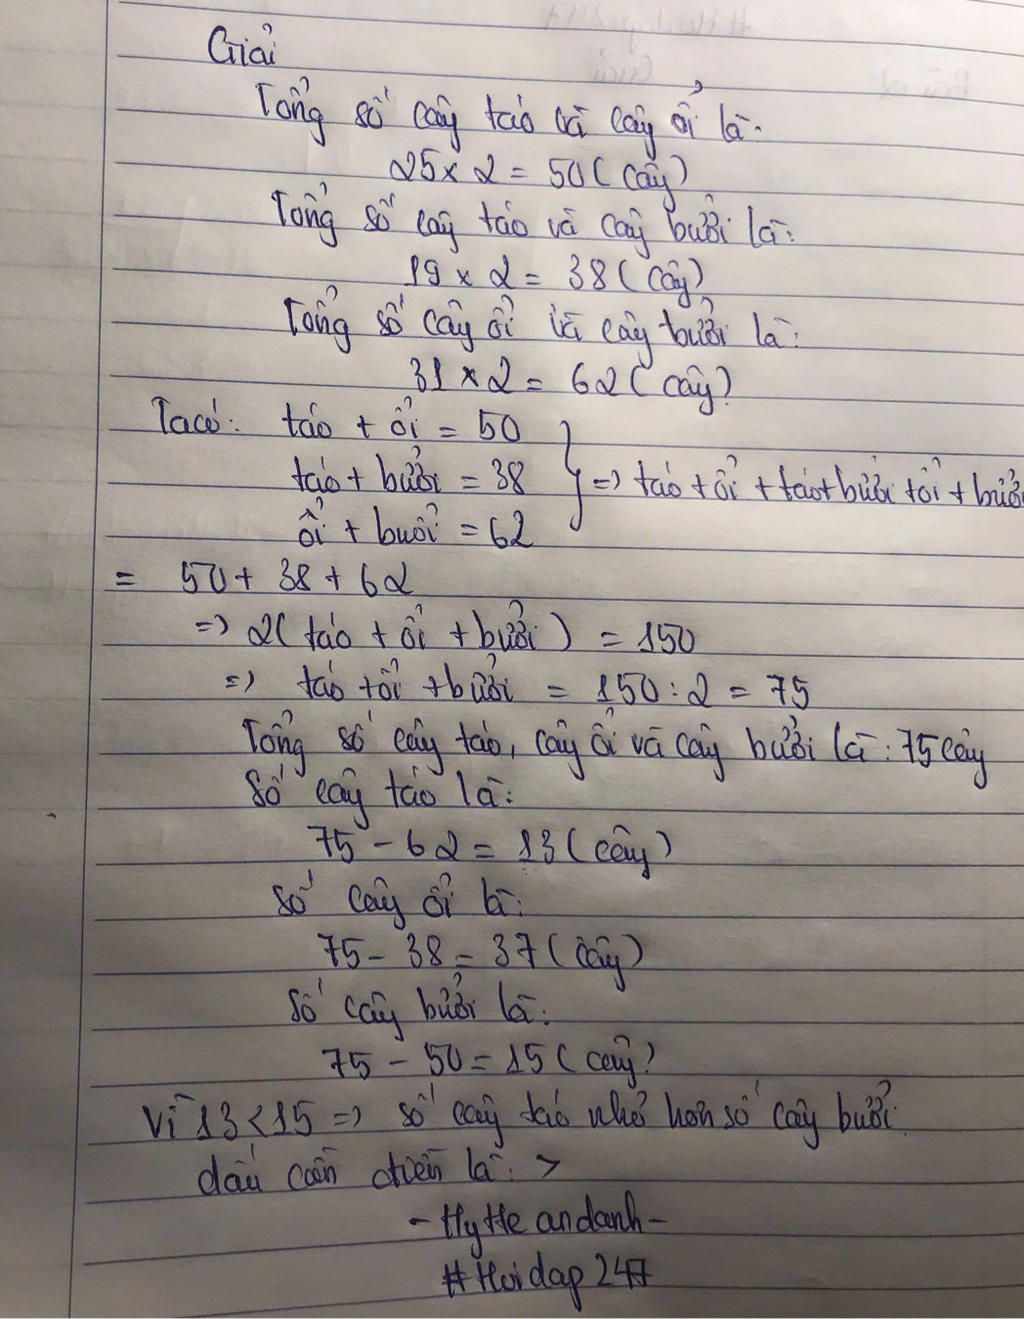 Giải
Tổng số cây táo và cây ổi là:
25 x 2 = 50 (cây)
Tổng số cây táo và cây bưởi là:
19 x 2 = 38 (cây)
Tổng số cây ổi và cây bưởi là:
31 x 2 = 62 (cây)
Ta có: táo + ổi = 50
táo + bưởi = 38 } => táo + ổi + táo + bưởi + ổi + bưởi
ổi + bưởi = 62
= 50 + 38 + 62
=> 2( táo + ổi + bưởi ) = 150
=> táo + ổi + bưởi = 150 : 2 = 75
Tổng số cây táo, cây ổi và cây bưởi là: 75 cây
Số cây táo là:
75 - 62 = 13 (cây)
Số cây ổi là:
75 - 38 = 37 (cây)
Số cây bưởi là:
75 - 50 = 15 (cây)
Vì 13 < 15 => số cây táo nhỏ hơn số cây bưởi.
dấu cần điền là: >
- HyHe andanh -
#Hoidap247